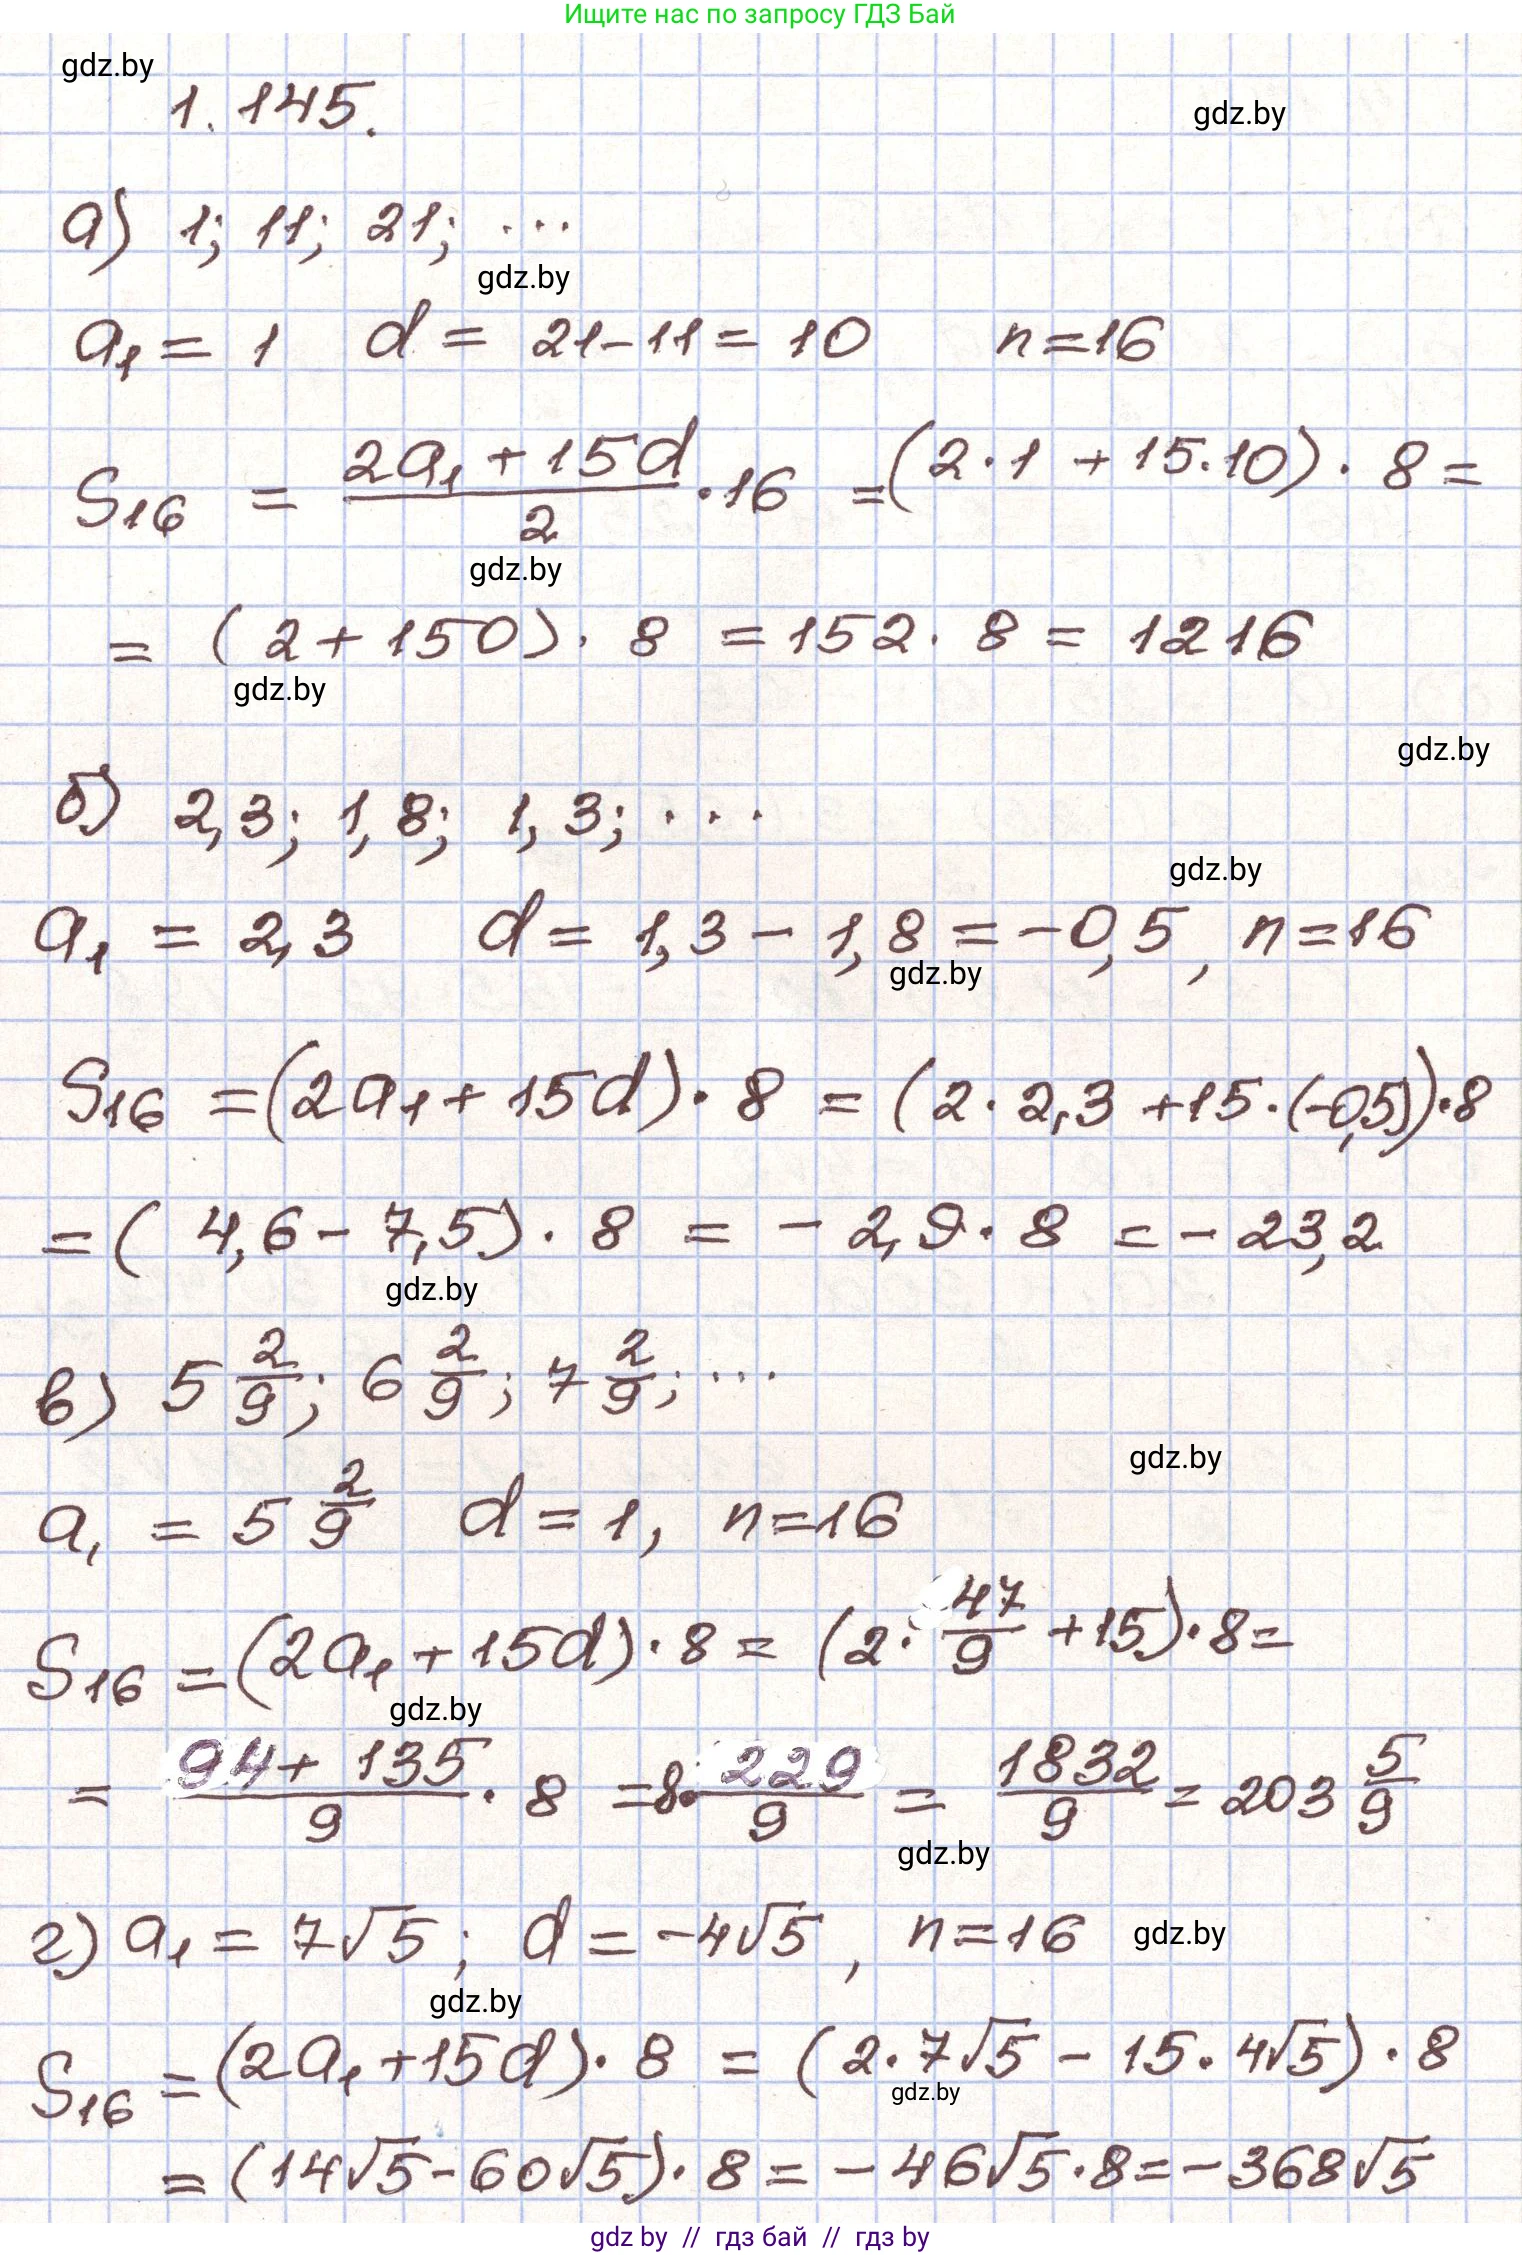 Ищите нас по запросу ГДЗ Бай
gdz.by
1.145.
gdz.by
а) 1; 11; 21; ...
gdz.by
a₁ = 1   d = 21-11 = 10   n=16
S₁₆ = (2a₁ + 15d)/2 · 16 = (2·1 + 15·10) · 8 =
gdz.by
= (2 + 150) · 8 = 152 · 8 = 1216
gdz.by
gdz.by
б) 2,3; 1,8; 1,3; ...
gdz.by
a₁ = 2,3   d = 1,3 - 1,8 = -0,5, n=16
gdz.by
S₁₆ = (2a₁ + 15d) · 8 = (2 · 2,3 + 15 · (-0,5)) · 8
= (4,6 - 7,5) · 8 = - 2,9 · 8 = - 23,2
gdz.by
в) 5 2/9; 6 2/9; 7 2/9; ...
gdz.by
a₁ = 5 2/9   d = 1, n=16
S₁₆ = (2a₁ + 15d) · 8 = (2 · 47/9 + 15) · 8 =
gdz.by
= (94 + 135)/9 · 8 = 8 · 229/9 = 1832/9 = 203 5/9
gdz.by
г) a₁ = 7√5; d = -4√5, n=16
gdz.by
gdz.by
S₁₆ = (2a₁ + 15d) · 8 = (2 · 7√5 - 15 · 4√5) · 8
gdz.by
= (14√5 - 60√5) · 8 = - 46√5 · 8 = - 368√5
gdz by // гдз бай // гдз by